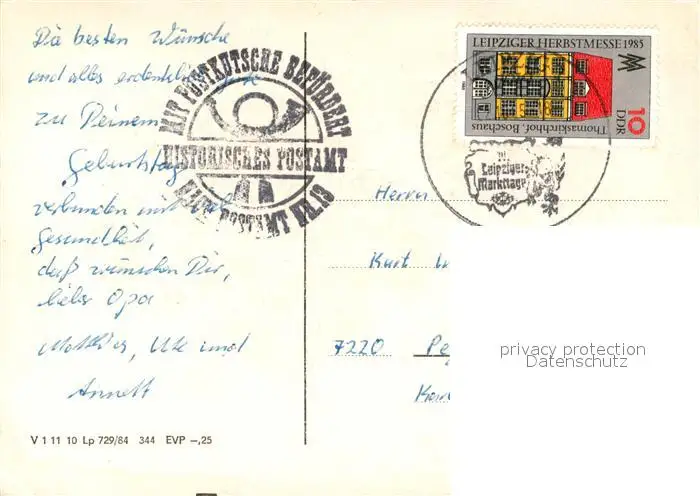 Die besten Wünsche
und alles erdenklich gute
zu Deinem
Geburtstag
verbunden mit viel
Gesundheit,
daß wünschen Dir,
lieber Opa
Matthias, Ute und
Annett
V 1 11 10 Lp 729/84 344 EVP –,25
MIT POSTKUTSCHE BEFÖRDERT
HISTORISCHES POSTAMT
POSTAMT NR. 13
LEIPZIGER HERBSTMESSE 1985
Thomaskirchhof, Boschaus
DDR
10
Leipziger
Markttage
Herrn
Kurt
7220 Pe
privacy protection
Datenschutz